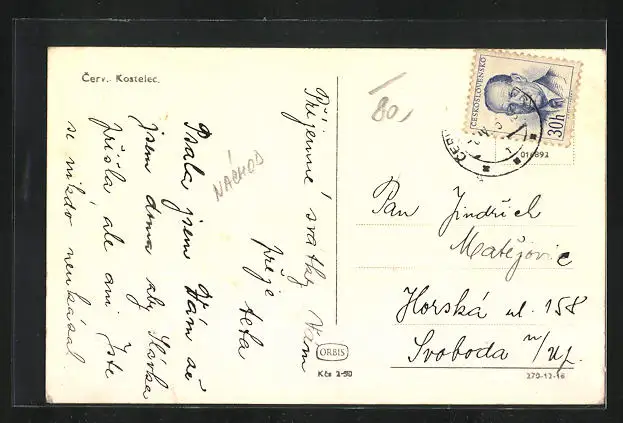 Červ. Kostelec.
Příjemné svátky Vám
přeje teta
Psala jsem Vám že
jsem doma aby Slávka
přišla ale ani jste
se nikdo neukázal.
NÁCHOD
80,
ČESKOSLOVENSKO
30h
ČERV
016892
Pan Jindřich
Matějovic
Horská ul. 158
Svoboda n/Úp.
ORBIS
Kčs 2·50
279-12-16